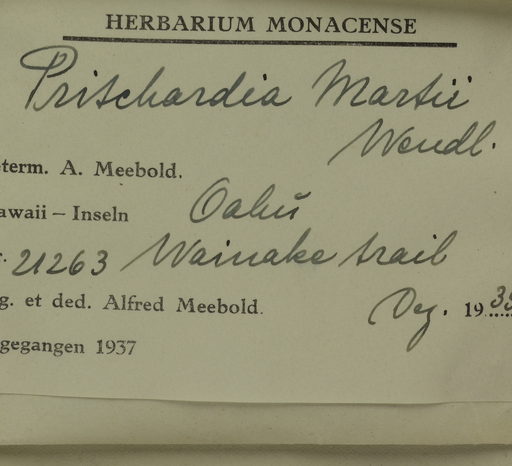 HERBARIUM MONACENSE
Pritchardia Martii
Wendl.
eterm. A. Meebold.
awaii – Inseln Oahu
r. 21263 Wainake trail
g. et ded. Alfred Meebold. Dez. 19
gegangen 1937